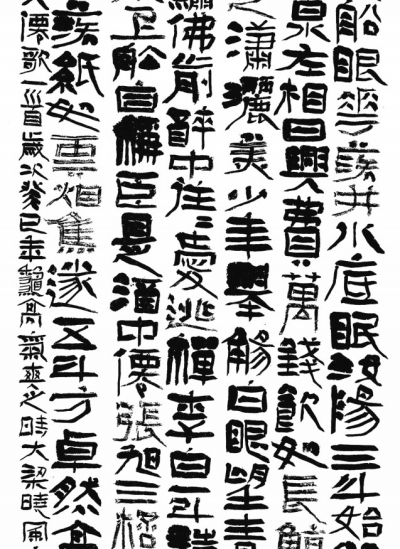 船眼花落井水底眠汝陽三斗始
泉左相日興費萬錢飲如長鯨
之瀟灑美少年舉觴白眼望青
繡佛前醉中往往愛逃禪李白一斗詩
上船自稱臣是酒中僊張旭三杯
落紙如雲煙焦遂五斗方卓然高
八僊歌一首歲次癸巳年龝高氣爽之時大梁曉風